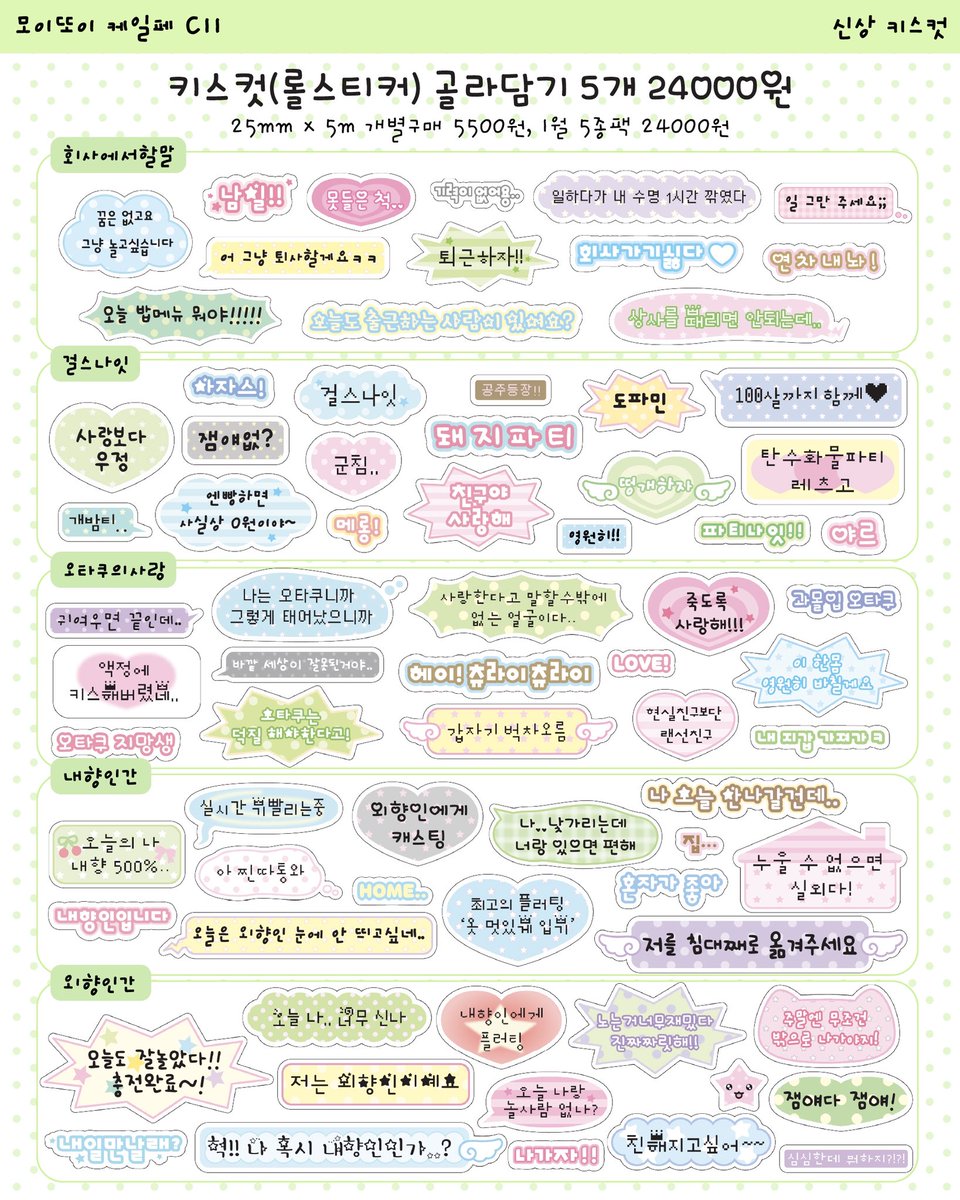 모이또이 케일페 C11
신상 키스컷
키스컷(롤스티커) 골라담기 5개 24000원
25mm x 5m 개별구매 5500원, 1월 5종팩 24000원
회사에서할말
꿈은 없고요
그냥 놀고싶습니다
남칠!!
못들은 척..
기력이 없어용..
일하다가 내 수명 1시간 깎였다
일 그만 주세요;;
어 그냥 퇴사할게요ㅋㅋ
퇴근하자!!
회사가기싫다♡
연차내놔!
오늘 밥메뉴 뭐야!!!!!
오늘도 출근하는 사람이 있어요?
상사를 때리면 안되는데..
걸스나잇
사랑보다
우정
차자스!
걸스나잇
공주등장!!
도파민
100살까지 함께♥
잼얘없?
군침..
돼지파티
탄수화물파티
레츠고
개밤티..
엔빵하면
사실상 0원이야~
메롱!
친구야
사랑해
떵개하자
영원히!!
파티나잇!!
야르
오타쿠의사랑
귀여우면 끝인데..
나는 오타쿠니까
그렇게 태어났으니까
사랑한다고 말할수밖에
없는 얼굴이다..
죽도록
사랑해!!!
과몰입 오타쿠
액정에
키스해버렸네..
바깥 세상이 잘못된거야..
헤이! 츄라이츄라이
LOVE!
이 한몸
영원히 바칠게요
오타쿠 지망생
오타쿠는
덕질 해야한다고!
갑자기 벅차오름
현실친구보단
랜선친구
내 지갑 가져가ㅋ
내향인간
오늘의 나
내향 500%..
실시간 뷔빨리는중
외향인에게
캐스팅
나..낯가리는데
너랑 있으면 편해
나 오늘 찬나갈건데..
집...
누울 수 없으면
실외다!
아 찐따통와
HOME..
혼자가 좋아
내향인입니다
오늘은 외향인 눈에 안 띄고싶네..
최고의 플러팅
'옷 멋있뷔 입뷔'
저를 침대째로 옮겨주세요
외향인간
오늘도 잘놀았다!!
충전완료~!
오늘 나.. 너무 신나
내향인에게
플러팅
노는거너무재밌다
진짜짜릿해!!
주말엔 무조건
밖으로 나가야지!
저는 외향인이예요
오늘 나랑
놀사람 없나?
잼얘다 잼얘!
내일만날래?
헉!! 나 혹시 내향인인가..?
나가자!!
친해지고싶어~~
심심한데 뭐하지?!?!